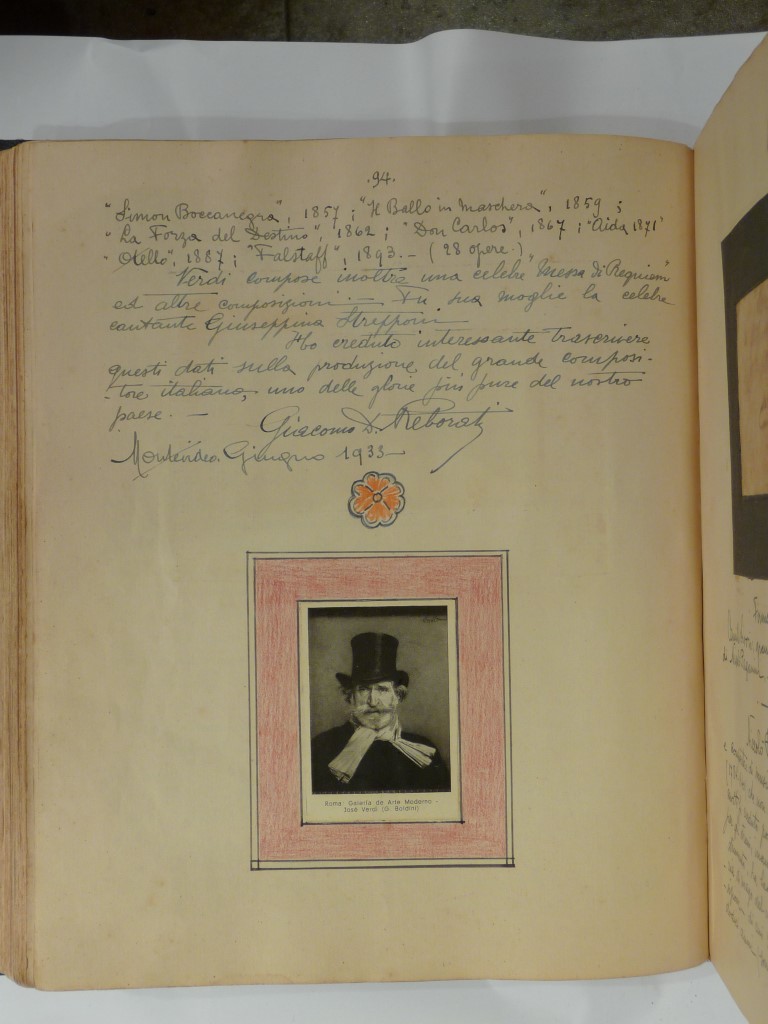 .94.
"Simon Boccanegra", 1857 ; "Il Ballo in Maschera", 1859 ;
"La Forza del Destino", 1862 ; "Don Carlos", 1867 ; "Aida 1871"
"Otello", 1887 ; "Falstaff", 1893. — (28 opere.)
Verdi compose inoltre una celebre "Messa di Requiem"
ed altre composizioni. — Fu sua moglie la celebre
cantante Giuseppina Strepponi
Ho creduto interessante trascrivere
questi dati sulla produzione del grande composi-
-tore italiano, uno delle glorie più pure del nostro
paese. —
Giacomo D. Reborati
Montevideo. Giugno 1933 —
Roma: Galería de Arte Moderno -
José Verdi (G. Boldini)